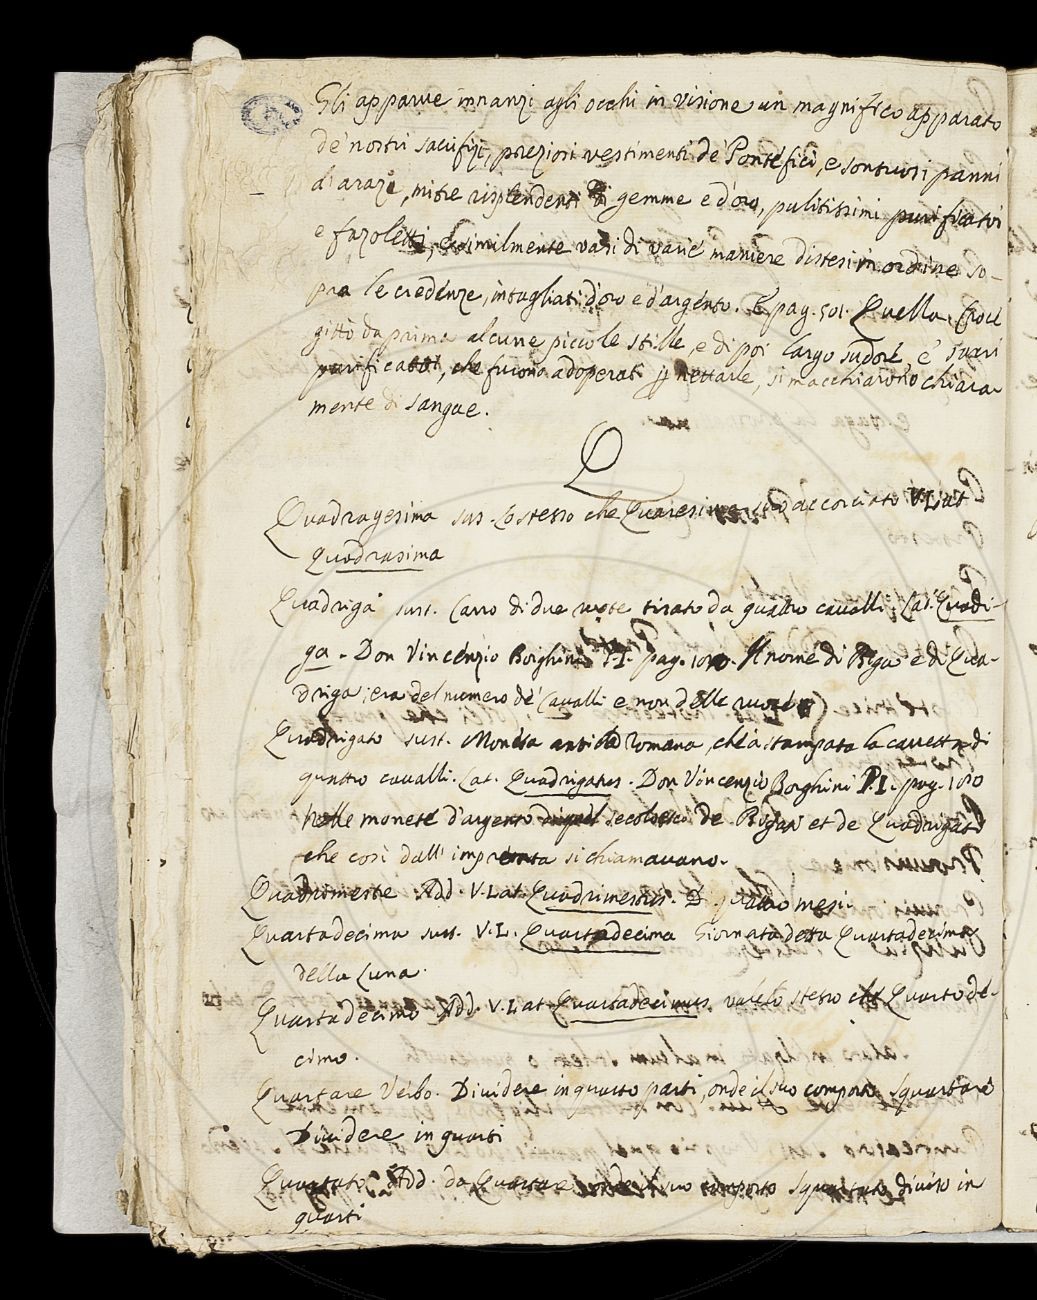 Gli apparve innanzi agli occhi in visione un magnifico apparato
de' nostri sacrifizj, preziosi vestimenti de' Pontefici, e sontuosi panni
di arazi, mitre risplendenti di gemme e d'oro, pulitissimi purificatoi
e fazoletti, e similmente vasi di varie maniere distesi in ordine so-
pra le credenze, intagliati d'oro e d'argento. E pag. 501. Quella Croce
gittò da prima alcune piccole stille, e di poi largo sudore, e i sagri
purificatoi, che furono adoperati p nettarle, si macchiarono chiara-
mente di sangue.
Q
Quadragesima sus. Lo stesso che Quaresima accorciato V. Lat
Quadrasima
Quadriga sust. Carro di due ruote tirato da quattro cavalli, Lat. Quadri-
ga. Don Vincenzio Borghini P.I. pag. Il nome di Biga e di Qua-
driga, era del numero de' Cavalli e non delle ruote
Quadrigato sust. Moneta antica Romana, ch'è stampata la carretta di
quattro cavalli. Lat. Quadrigatus. Don Vincenzio Borghini P.I. pag. 160
Nelle monete d'argento di quel secolo de Bigati et de Quadrigati
che così dall'impronta si chiamavano.
Quadrimestre Add. V. Lat. Quadrimestris. Di quattro mesi.
Quartadecima sust. V. L. Quartadecima Giornata detta Quartadecima
della Luna.
Quartadecimo Add. V. Lat Quartadecimus, vale lo stesso che Quarto de-
cimo.
Quartare Verbo. Dividere in quarto parti, onde il suo composto Squartare
Dividere in quarti
Quartato Add. da Quartare onde il suo composto Squartato diviso in
quarti